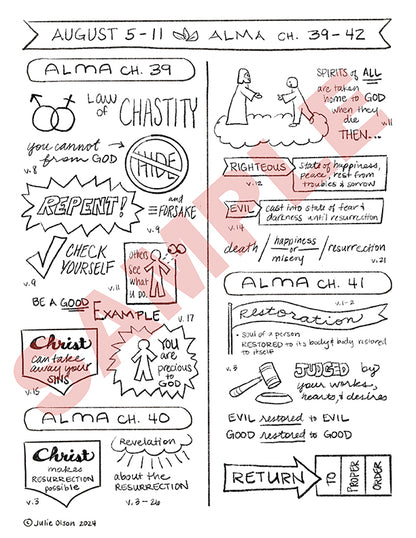 AUGUST 5-11 ALMA CH. 39-42
ALMA CH. 39
Law
of CHASTITY
you cannot
from GOD
HIDE
v. 8
REPENT!
and
FORSAKE
v. 9
CHECK
YOURSELF
v. 9
Others
see
what
u do.
v. 11
BE A GOOD
EXAMPLE
v. 17
Christ
can take
away your
SINS
v. 15
YOU
are
precious
to
GOD
ALMA CH. 40
Christ
makes
RESURRECTION
possible
v. 3
Revelation
about the
RESURRECTION
v. 3-26
SPIRITS of ALL
are taken
home to GOD
when they
die
v. 11
THEN...
RIGHTEOUS
state of happiness,
peace, rest from
troubles & sorrow
v. 12
EVIL
cast into state of fear &
darkness until resurrection
v. 14
death / happiness or misery / resurrection
v. 21
ALMA CH. 41
v. 1-2
Restoration
• Soul of a person
RESTORED to its body & body restored
to itself
v. 3
JUDGED by
your works,
hearts & desires
EVIL restored to EVIL
GOOD restored to GOOD
RETURN
TO
PROPER
ORDER
© Julie Olson 2024
SAMPLE